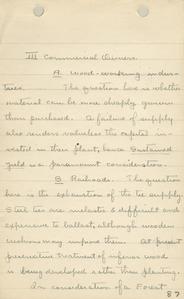 III Commercial Owners.
A. Wood-working indus-
tries. The question here is whether
material can be more cheaply grown
than purchased. A failure of supply
also renders valueless the capital in-
vested in their plant, hence sustained
yield is a paramount consideration.
B. Railroads. The question
here is the exhaustion of the tie supply
Steel ties are inelastic & difficult and
expensive to ballast, although wooden
cushions may improve them. At present
preservative treatment of inferior wood
is being developed rather than planting.
In consideration of a Forest
87